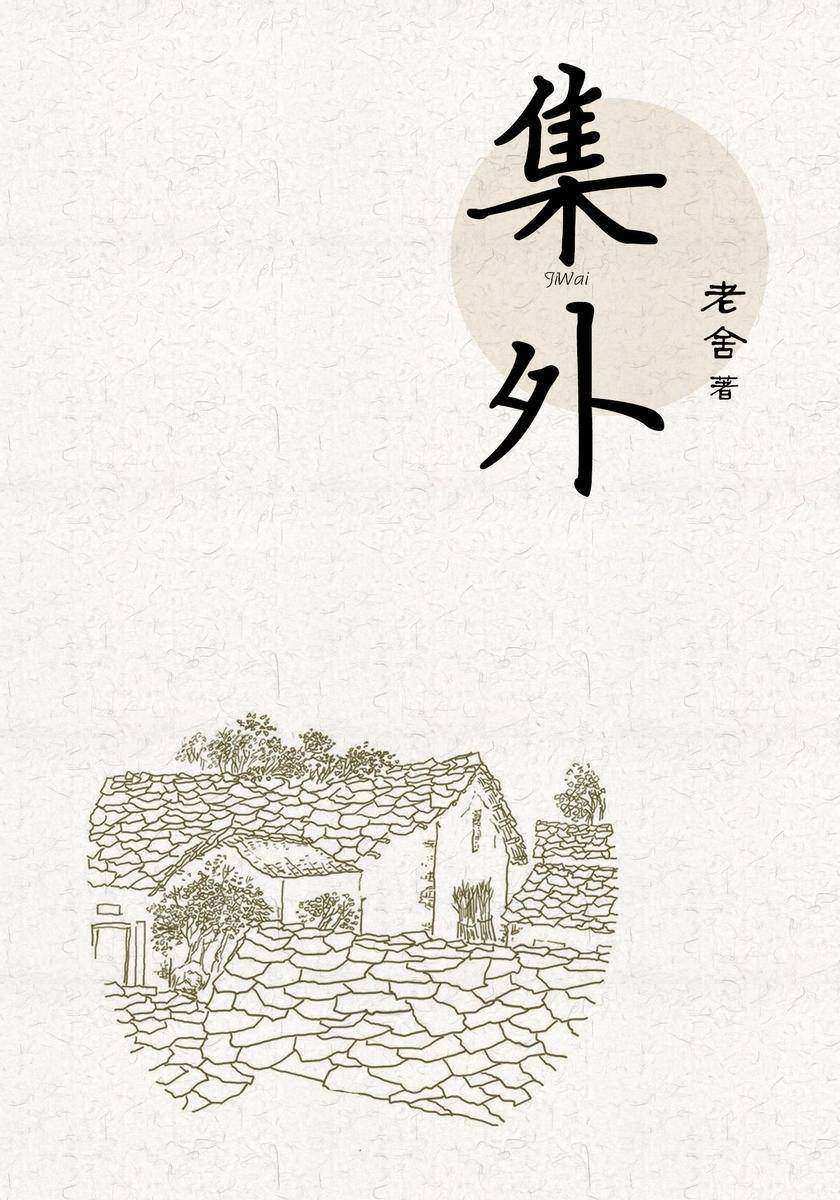 集外
JiWai
老舍 著